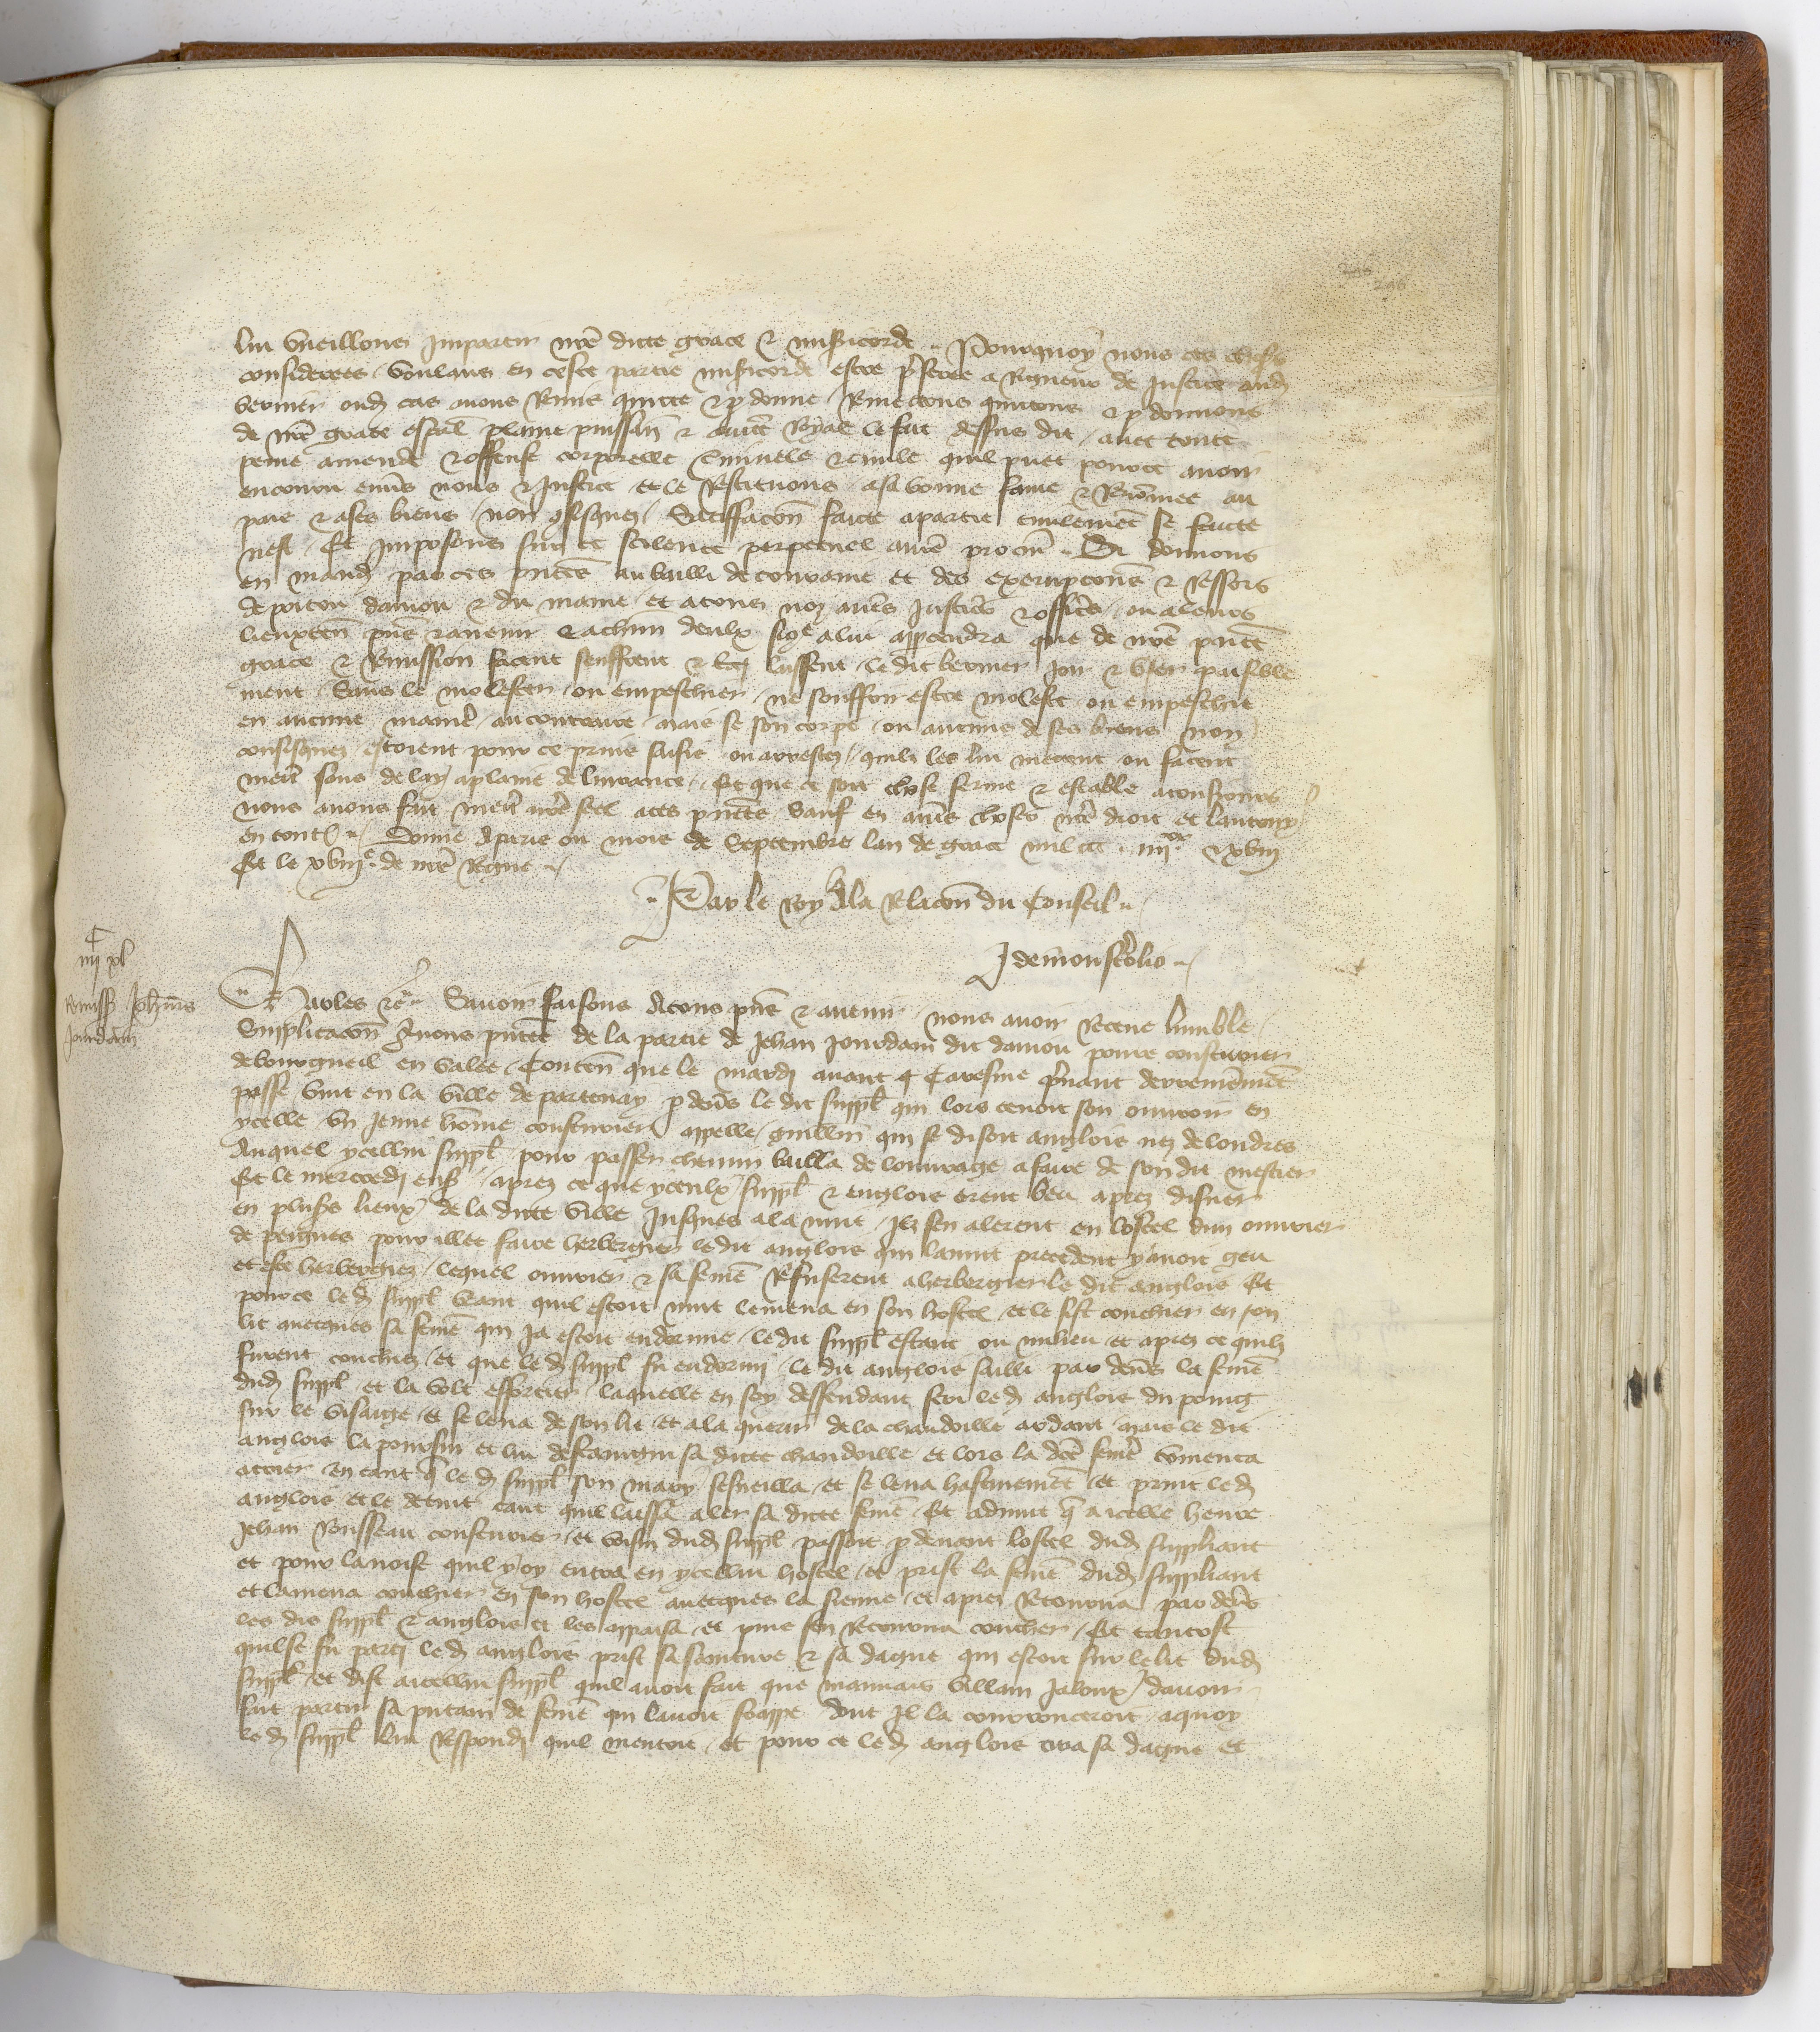 lui vueillons impartir nre̅ dicte grace & misericorde. Pourquoy nous ces choses
considerees voulans en ceste partie misericorde estre p̓feree a Rigueur de Justice aud
bernier oud cas avons Remis quitte & p donne Remectons quictons & p donnons
de nre̅ grace especl plaine puissan̅ & aucte̅ Royal le fait dessus dit avec toute
peine amende & offense corporelle criminele & civile quil puet pour ce avoir
encouru enve̅s nous & Justice et le Restituons a sa bonne fame & Renomee au
pais & a ses biens non confisquez Satisfacio̅n faicte a partie civilemēt se faicte
nest. Et Imposons sur ce scilence perpetuel a nre̅ procur̅. Si donnons
en mand par ces pn̅tes au bailli de touraine et des exempcions & Ressors
de poitou danjou & du maine et a tous noz aut̅s Justiciers & officiers ou a leurs
lieuxten̅ pn̅s & avenir & a chūn deulx sicō̅e a lui appartendra que de nre̅ pn̅te
grace & Remission facent seuffrent & laissent le dit bernier Joir & user paisible
ment Sans le molester ou empeschier ne souffrir estre moleste ou empeschie
en aucune manie̅r au contraire mais se son corps ou aucuns de ses biens non
confisquez estoient pour ce prins saisis ou arrestez quilz les lui mectent ou facent
mect̅r sans delay a plaine delivrance. Et que ce soit chose ferme & estable a tousjours
nous avons fait mect̅r nre̅ seel a ces pn̅tes Sauf en aut̅s choses nre̅ droit et lautruy
en toutes. Donne a paris ou mois de Septembre lan de grace mil ccc iiii xx & xviii
Et le xviii e de nre̅ Regne.
Par le Roy a la Relacion du Conseil.
J de monsterolio.
iiii xl
Remissio Johannis
Jourdain
Charles &c̅. Savoir faisons a tous pn̅s & avenir nous avoir Receue lumble
Supplicacio̅n a nous pn̅tee de la partie de Jehan Jourdain dit danjou povre cousturier
de bourgueil en valee Conten̅ que le mardi avant Caresme p̓nant derrenieremēt
passe vint en la ville de partenay p dev̅s le dit suppl̅ qui lors tenoit son ouvrouir en
ycelle un jeune hōme cousturier appelle guillemin qui se disoit anglois nez de londres
Auquel ycellui suppl̅ pour passer chemin bailla de louvrage a faire de son dit mestier
Et le mercredi ens̅ aprez ce que yceulx suppl̅ & englois orent beu aprez disner
en plus̅s lieux de la dicte ville Jusques a la nuit ilz sen alerent en lostel dun ouvrier
de peignes pour illec faire herbergier le dit anglois qui la nuit precedent y avoit geu
et este herbergiez lequel ouvrier & sa fem̅e Refuserent a herbergier le dit anglois Et
pour ce led suppl̅ veant quil estoit nuit lemena en son hostel et le fist couchier en son
lit avecques sa fem̅e qui Ja estoit endormie le dit suppl̅ estant ou milieu et aprez ce quilz
furent couchiez et que led suppl̅ fu endormi le dit anglois sailli par dev̅s la fem̅e
dud suppl̅ et la volt efforcier laquelle en soy deffendant feri led anglois du poing
sur le visaige & se leva de son lit et ala querir de la chandoille ardant mais le dit
anglois la poursui et lui destaingni sa dicte chandoille et lors la dicte fem̅e commenca
a crier en tant q̅ led suppl̅ son mary sesveilla et se leva hastivemēt et print led
anglois et le detint tant quil laissa aler sa dicte fem̅e Et advint q̅ a icelle heure
Jehan Rousseau cousturier et voisin dud suppl̅ passoit p devant lostel dud suppliant
et pour la noise quil y oy entra en ycellui hostel et prist la fem̅e dud suppliant
et lamena couchier en son hostel avecques la sienne et aprez Retourna par dev̅s
les dis suppl̅ & anglois et les appaisa et puis sen Retourna coucher Et tantost
quil se fu parti led anglois prist sa sainture & sa dague qui estoit sur le lit dud
suppl̅ et dist a icellui suppl̅ quil avoit fait que mauvais villain Jaloux davoir
fait partir sa putain de fem̅e qui lavoit frappe dont il la courrouceroit a quoy
led suppl̅ lui Respondi quil mentoit et pour ce led anglois tira sa dague et